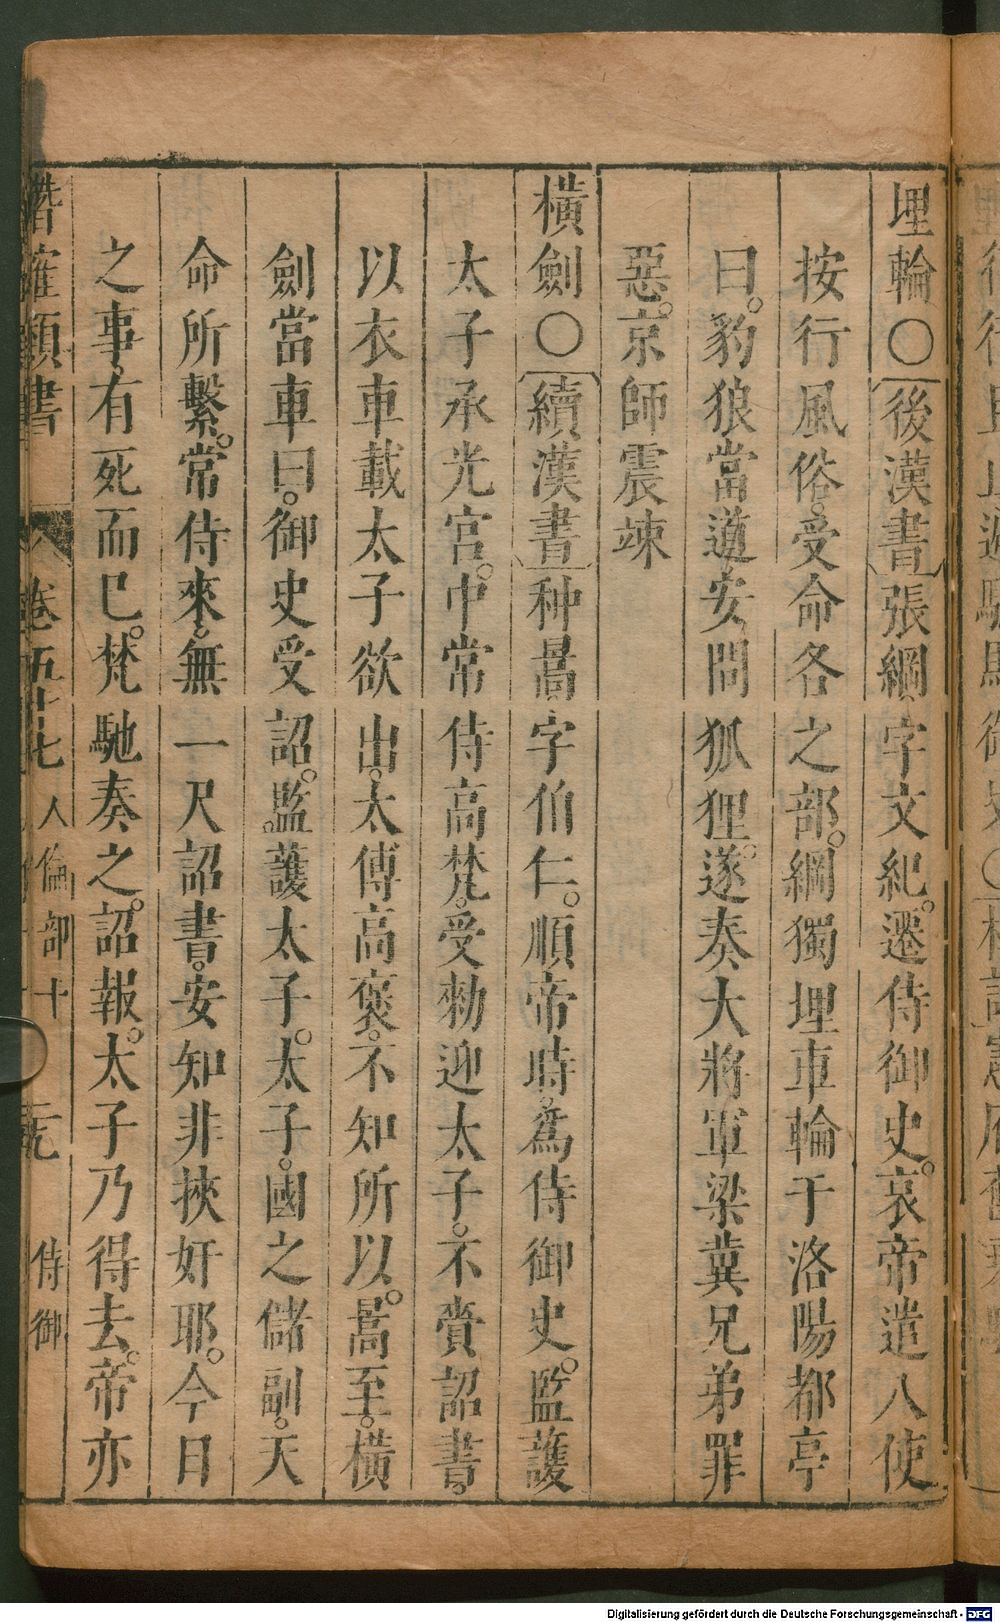 埋輪〇後漢書張綱字文紀。遷侍御史。哀帝遣八使
按行風俗。受命各之部。綱獨埋車輪于洛陽都亭
曰。豹狼當道安問狐狸。遂奏大將軍梁冀兄弟罪
惡。京師震竦
橫劍〇續漢書种暠字伯仁。順帝時。為侍御史。監護
太子承光宮。中常侍高梵。受勑迎太子。不賫詔書。
以衣車載太子欲出。太傅高褒。不知所以。暠至。橫
劍當車曰。御史受詔。監護太子。太子。國之儲副。天
命所繫。常侍來。無一尺詔書。安知非挾奸耶。今日
之事。有死而巳。梵馳奏之。詔報。太子乃得去。帝亦
潛確類書 卷五十七 人倫部十 侍御
Digitalisierung gefördert durch die Deutsche Forschungsgemeinschaft - DFG